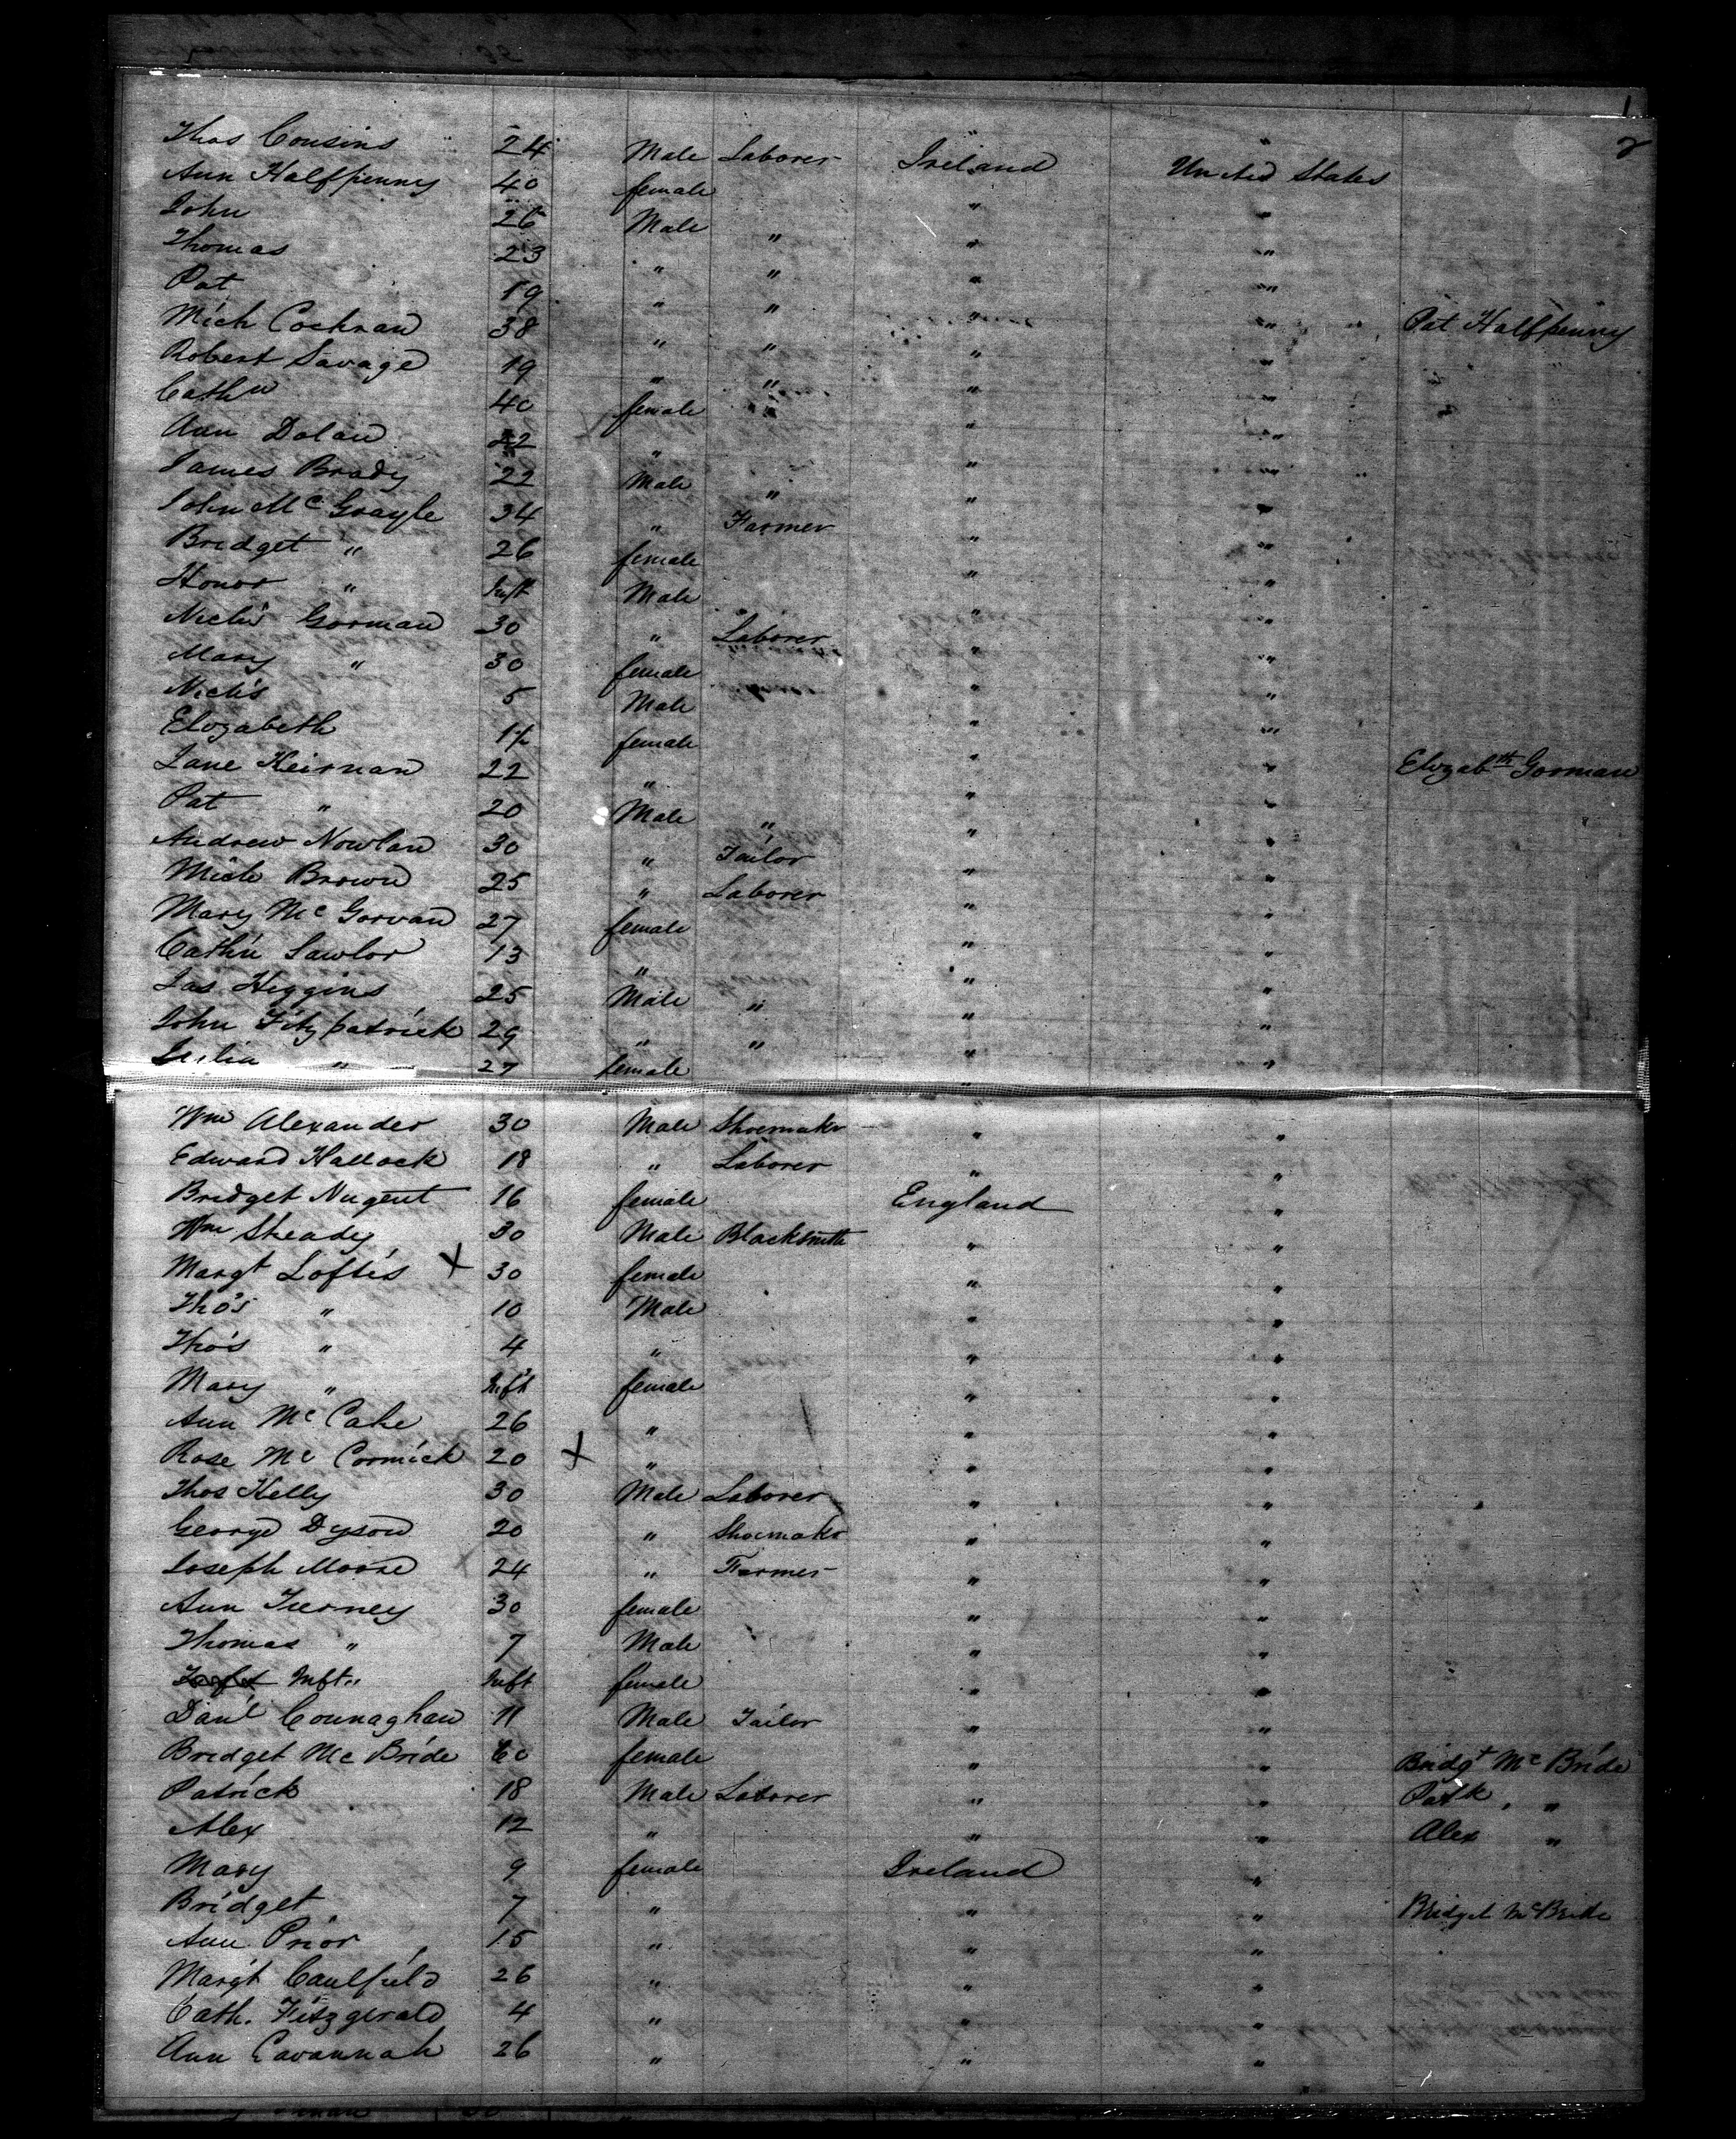 1
2
Thos Cousins 24 Male Laborer Ireland United States
Ann Halfpenny 40 female " "
John 26 Male " " "
Thomas 23 " " " "
Pat 19 " " " "
Mich Cochran 38 " " " " Pat Halfpenny
Robert Savage 19 " " " "
Cathn 40 female " "
Ann Dolan 22 " " "
James Brady 22 Male " " "
John Mc Grayle 34 " Farmer " "
Bridget " 26 female " "
Honor " Inft Male " "
Nichs Gorman 30 " Laborer " "
Mary " 30 female " "
Nichs 5 Male " "
Elizabeth 1½ female " "
Jane Keirnan 22 " " " Elizabth Gorman
Pat " 20 Male " " "
Andrew Nowlan 30 " Tailor " "
Mich Brown 25 " Laborer " "
Mary Mc Gorvan 27 female " "
Cathn Lawlor 13 " " "
Jas Higgins 25 Male " " "
John Fitzpatrick 29 " " " "
Julia " 27 female " "
Wm Alexander 30 Male Shoemakr " "
Edward Hallack 18 " Laborer " "
Bridget Nugent 16 female England "
Wm Sheady 30 Male Blacksmith " "
Margt Loftis X 30 female " "
Tho's " 10 Male " "
Tho's " 4 " " "
Mary " Inft female " "
Ann Mc Cake 26 " " "
Rose Mc Cormick 20 X " " "
Thos Kelly 30 Male Laborer " "
George Dyson 20 " Shoemakr " "
Joseph Moore 24 " Farmer " "
Ann Tierney 30 female " "
Thomas " 7 Male " "
Inft " Inft female " "
Danl Counaghan 11 Male Tailor " "
Bridget Mc Bride 60 female " " Bridgt Mc Bride
Patrick 18 Male Laborer " " Patk "
Alex 12 " " " Alex "
Mary 9 female Ireland "
Bridget 7 " " " Bridget McBride
Ann Prior 15 " " "
Margt Caulfield 26 " " "
Cath. Fitzgerald 4 " " "
Ann Cavannah 26 " " "